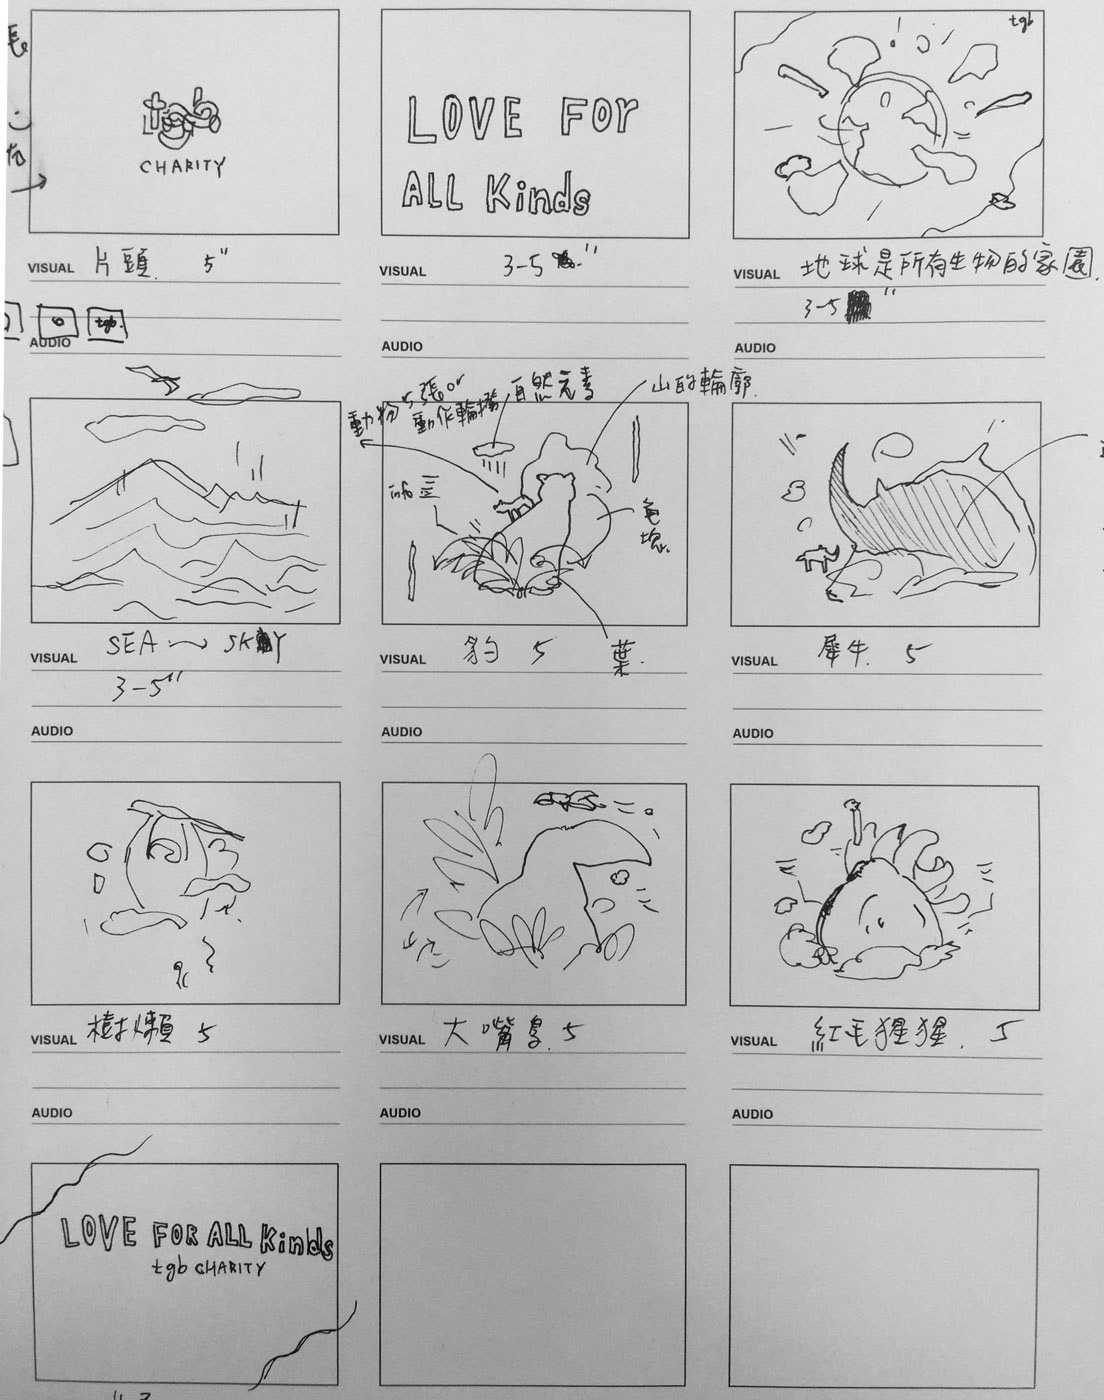 tgb
CHARITY
VISUAL 片頭. 5"
tgb.
AUDIO
LOVE FOr
ALL Kinds
VISUAL 3-5 "
AUDIO
tgb
VISUAL 地球是所有生物的家園.
3-5 "
AUDIO
VISUAL SEA SKY
3-5"
AUDIO
動物5張or
動作輪播
自然元素
山的輪廓
info
色
塊.
VISUAL 豹 5 葉.
AUDIO
VISUAL 犀牛. 5
AUDIO
VISUAL 樹懶 5
AUDIO
VISUAL 大嘴鳥. 5
AUDIO
VISUAL 紅毛猩猩. 5
AUDIO
LOVE FOR ALL Kinds
tgb CHARITY